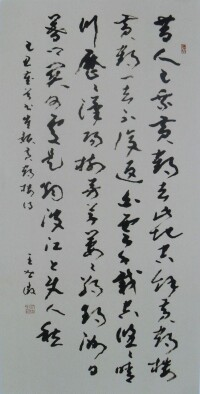 昔人已乘黃鶴去此地空餘黃鶴樓
黃鶴一去不復返白雲千載空悠々晴
川歷々漢陽樹芳草萋々鸚鵡洲日
暮鄉關何處是煙波江上使人愁
己丑 黃鶴樓詩